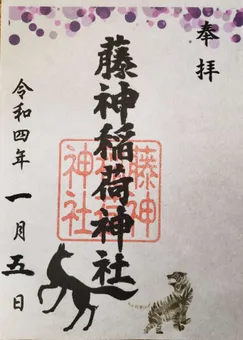 奉拝
藤神稲荷神社
藤神稲荷神社
令和四年一月五日